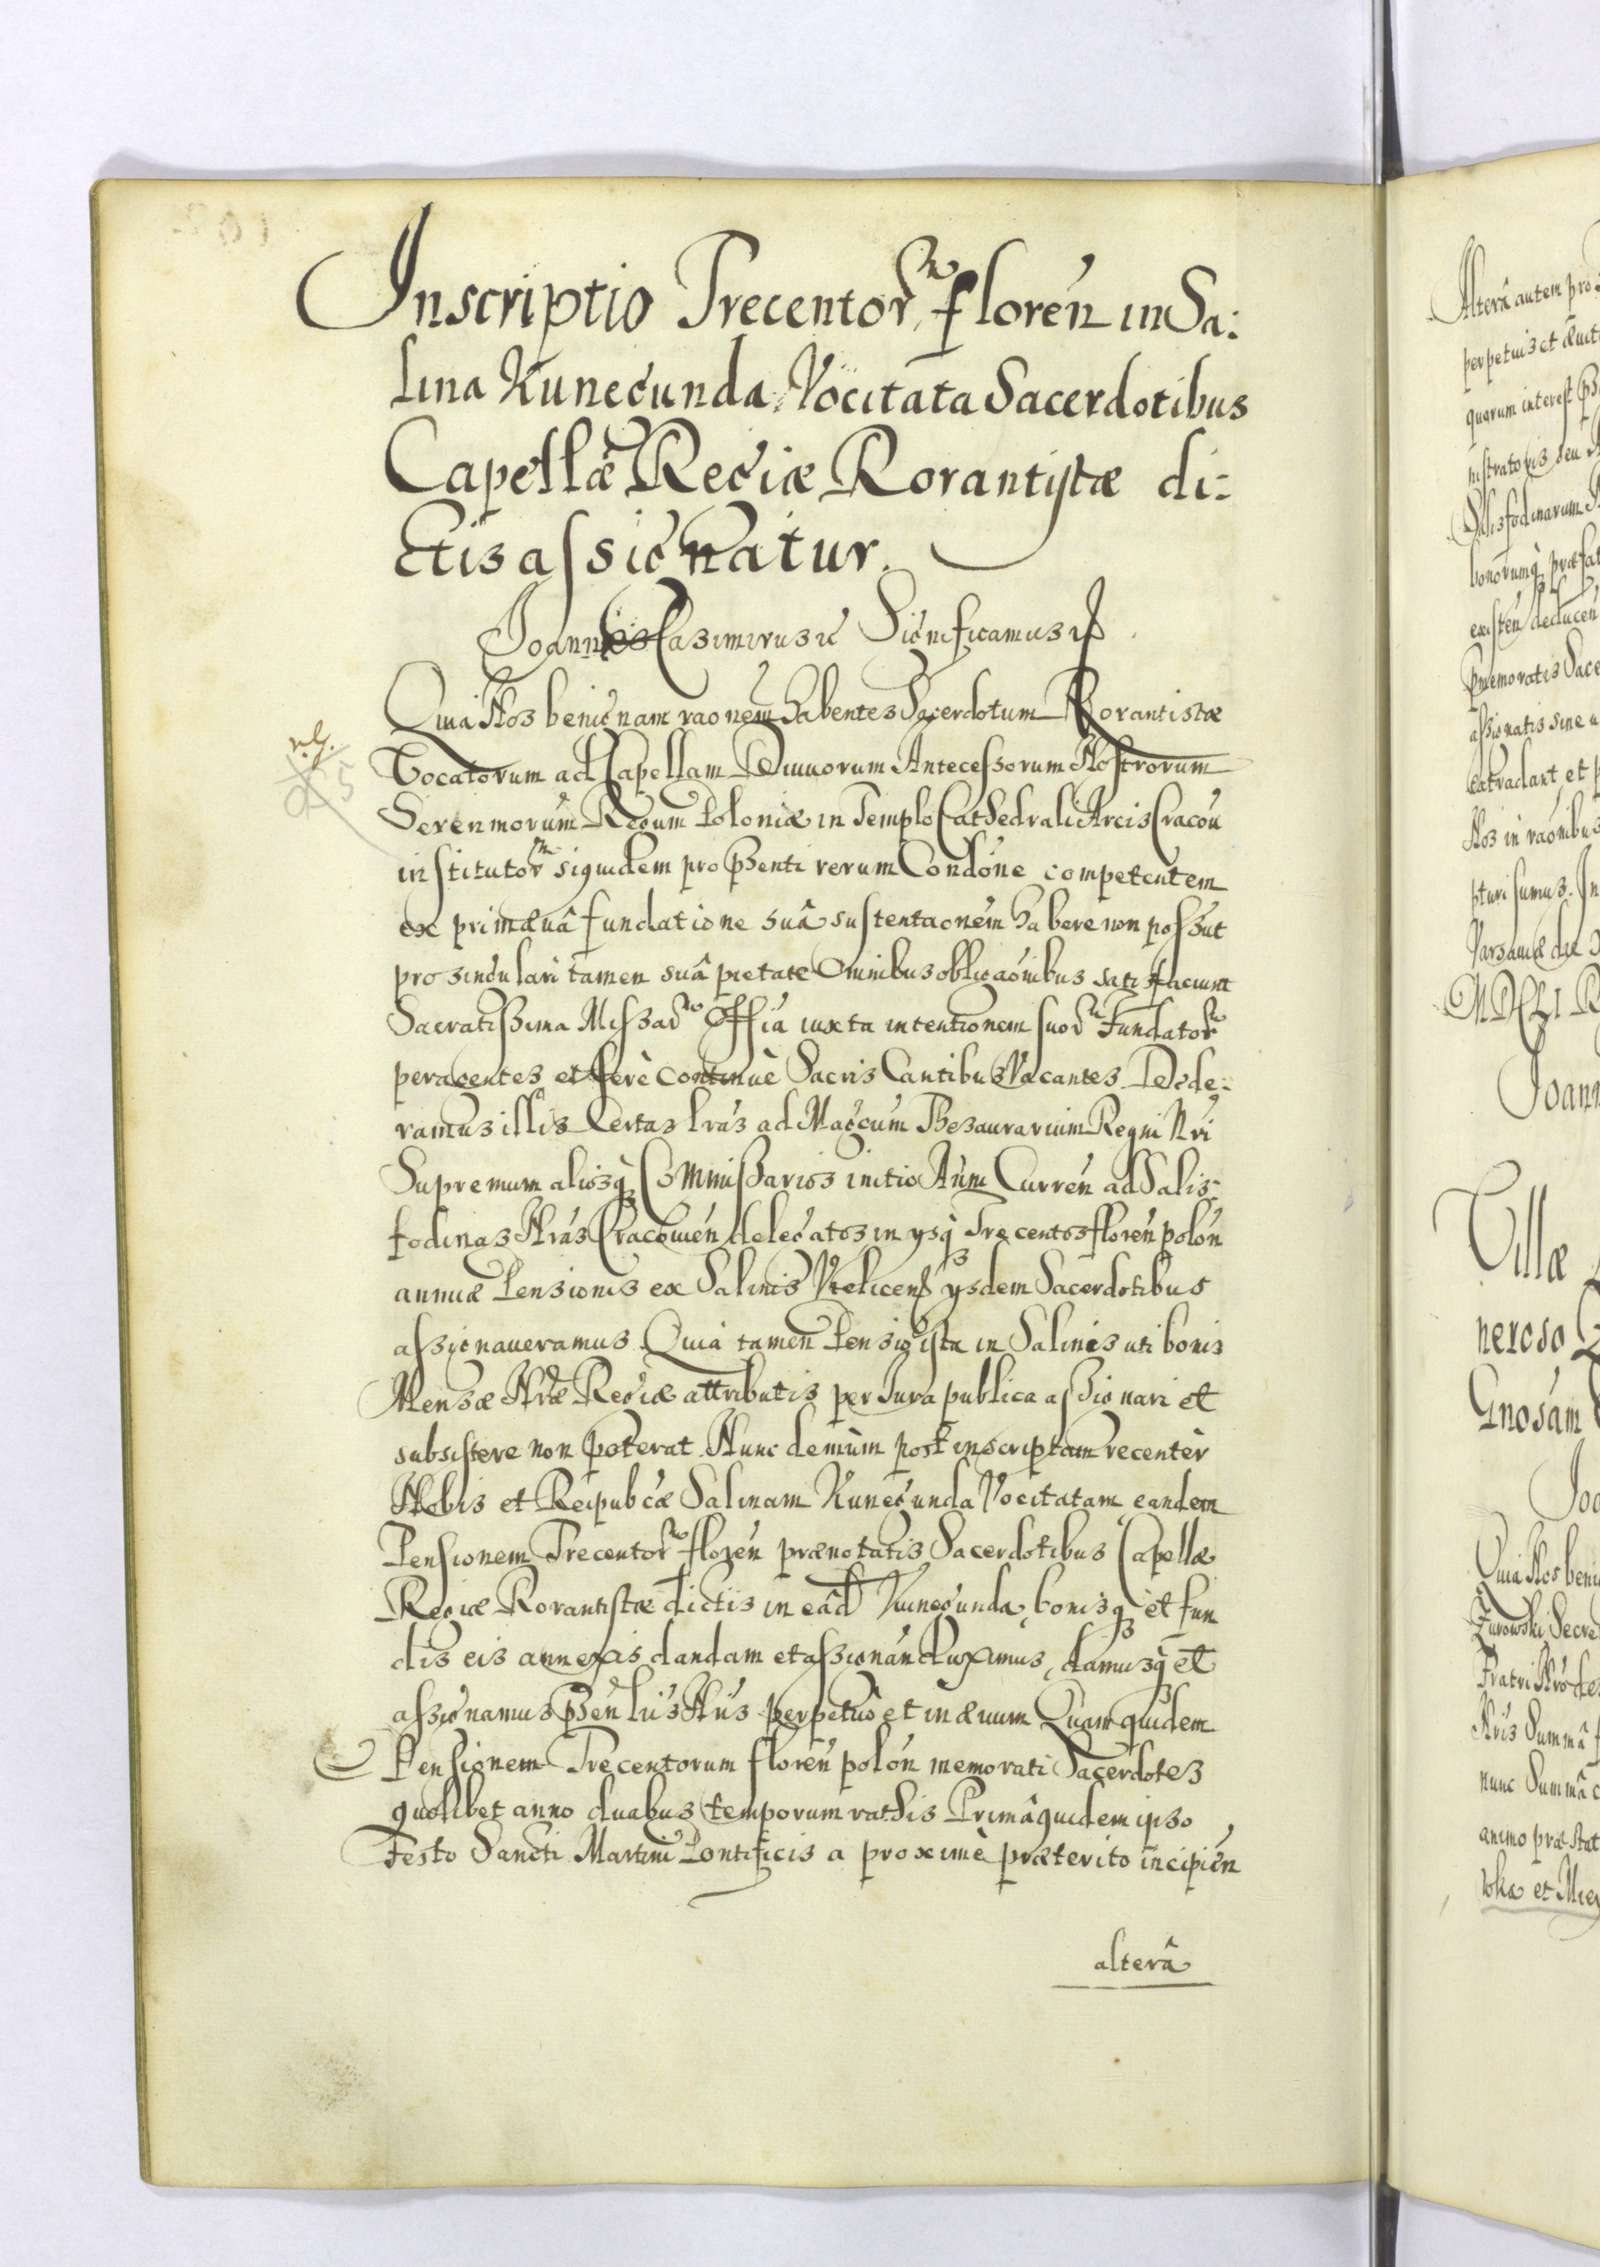 Inscriptio Trecentor florén in Sa:
lina Kunegunda Vocitata Sacerdotibus
Capellæ Regiæ Rorantistæ di:
ctis assignatur.
Joannes Casimirus Significamus
Quia Nos benignam raonem habentes Sacerdotum Rorantistæ
Vocatorum ad Capellam Divuorum Antecessorum Nostrorum
Serenmorum Regum Poloniæ in Templo Cathedrali Arcis Cracou
institutor siquidem pro pñenti rerum Condóne competentem
ex primæuâ fundatione suâ sustentaonem habere non possut
pro singulari tamen suâ pietate Omnibus obligaónibus satisfaciunt
Sacratissima Missar Offia iuxta intentionem suor Fundator
peragentes et ferè continuè Sacris Cantibus Vacantes Dede:
ramus illis Certas lras ad Magcum Thesaurarium Regni Nri
Supremum aliosq Commissarios initio Anni Currén ad Salis:
fodinas Nras Cracouién delegatos in ysq Trecentos florén polón
annuæ Pensionis ex Salinis Vielicens ysdem Sacerdotibus
assignaueramus Quia tamen Pensio ista in Salinis uti bonis
Mensæ Nræ Regiæ attributis per Jura publica assignari et
subsistere non poterat Nunc demùm post inscriptam recentèr
Nobis et Reipubcæ Salinam Kunegunda Vocitatam eandem
Pensionem Trecentor florén prænotatis Sacerdotibus Capellæ
Regiæ Rorantistæ dictis in eâd Kunegunda, bonisq et fun
dis eis annexis dandam et assignán duximus, damusq et
assignamus pñén lris Nris perpetuò et in æuum Quam quidem
Pensionem Trecentorum florén polón memorati Sacerdotes
quolibet anno duabus temporum rathis Primâ quidem ipso
Festo Sancti Martini Pontificis a proximè præterito incipién
alterâ
Alterâ autem pro
perpetuis et æuit
quorum interest
nistratoris seu
Salisfodinarum
bonorumq præfat
existén deducén
pmemoratis Sace
assignatis sine
extradant, et p
Nos in raonibus
pturi sumus. In
Varsauiæ die
MDCLI R
Joann
Villæ
neroso
Gnosám
Joa
Quia Nos beni
Zurowski Secre
Fratri Nro de
Nris Summâ
nunc Summâ
animo præstat
et Mie